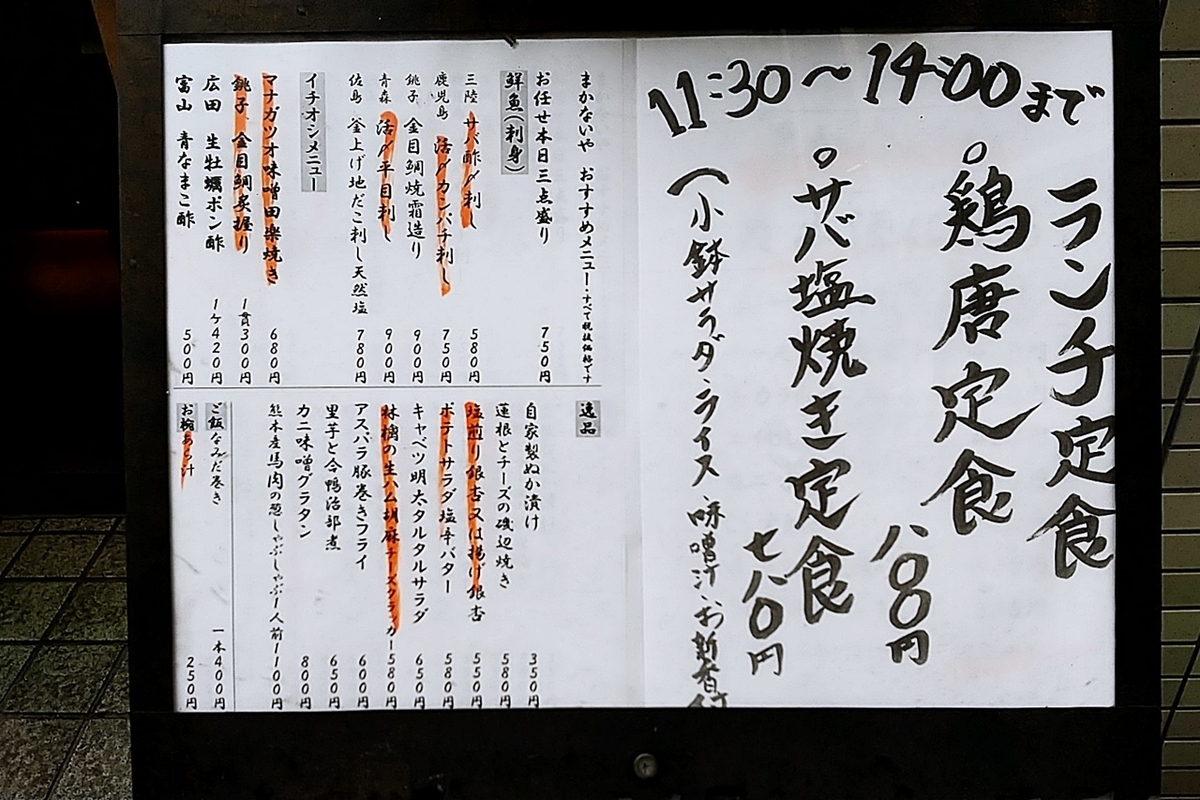 11:30〜14:00まで
ランチ定食
○鶏唐定食
八〇〇円
○サバ塩焼き定食
七八〇円
(小鉢サラダ、ライス 味噌汁、お新香付
まかないや おすすめメニュー・すべて税抜価格です
お任せ本日三点盛り 750円
鮮魚(刺身)
三陸 サバ酢〆刺し 580円
鹿児島 活〆カンパチ刺し 750円
銚子 金目鯛焼霜造り 900円
青森 活〆平目刺し 900円
佐島 釜上げ地だこ刺し天然塩 780円
イチオシメニュー
マナガツオ味噌田楽焼き 680円
銚子 金目鯛炙握り 1貫300円
広田 生牡蠣ポン酢 1ケ420円
富山 青なまこ酢 500円
逸品
自家製ぬか漬け 350円
蓮根とチーズの磯辺焼き 580円
塩煎り銀杏又は揚げ銀杏 550円
ポテトサラダ塩辛バター 580円
キャベツ明太タルタルサラダ 650円
林檎の生ハム胡麻チーズクラッカー 580円
アスパラ豚巻きフライ 600円
里芋と合鴨治部煮 650円
カニ味噌グラタン 800円
熊本産馬肉の葱しゃぶしゃぶ1人前1100円
ご飯 なみだ巻き 一本400円
お椀 あら汁 250円